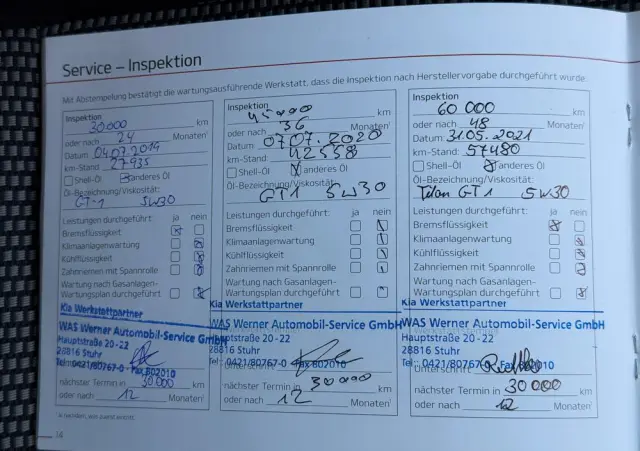 Service – Inspektion
Mit Abstempelung bestätigt die wartungsausführende Werkstatt, dass die Inspektion nach Herstellervorgabe durchgeführt wurde.
Inspektion
30000 km
oder nach 24 Monaten¹
Datum: 04.07.2019
km-Stand: 27935
Shell-Öl anderes Öl
Öl-Bezeichnung/Viskosität:
GT-1 5W30
Leistungen durchgeführt: ja nein
Bremsflüssigkeit
Klimaanlagenwartung
Kühlflüssigkeit
Zahnriemen mit Spannrolle
Wartung nach Gasanlagen-
Wartungsplan durchgeführt
Kia Werkstattpartner
WAS Werner Automobil-Service GmbH
Hauptstraße 20-22
28816 Stuhr
Tel.: 0421/80767-0 Fax 802010
nächster Termin in 30000 km
oder nach 12 Monaten¹
Inspektion
45000 km
oder nach 36 Monaten¹
Datum: 07.07.2020
km-Stand: 42558
Shell-Öl anderes Öl
Öl-Bezeichnung/Viskosität:
GT1 5W30
Leistungen durchgeführt: ja nein
Bremsflüssigkeit
Klimaanlagenwartung
Kühlflüssigkeit
Zahnriemen mit Spannrolle
Wartung nach Gasanlagen-
Wartungsplan durchgeführt
Kia Werkstattpartner
WAS Werner Automobil-Service GmbH
Hauptstraße 20-22
28816 Stuhr
Tel.: 0421/80767-0 Fax 802010
Unterschrift
nächster Termin in 30000 km
oder nach 12 Monaten¹
Inspektion
60 000 km
oder nach 48 Monaten¹
Datum: 31.05.2021
km-Stand: 57480
Shell-Öl anderes Öl
Öl-Bezeichnung/Viskosität:
GT1 5W30
Leistungen durchgeführt: ja nein
Bremsflüssigkeit
Klimaanlagenwartung
Kühlflüssigkeit
Zahnriemen mit Spannrolle
Wartung nach Gasanlagen-
Wartungsplan durchgeführt
Kia Werkstattpartner
WAS Werner Automobil-Service GmbH
Hauptstraße 20-22
28816 Stuhr
Tel.: 0421/80767-0 Fax 802010
Unterschrift
nächster Termin in 30 000 km
oder nach 12 Monaten¹